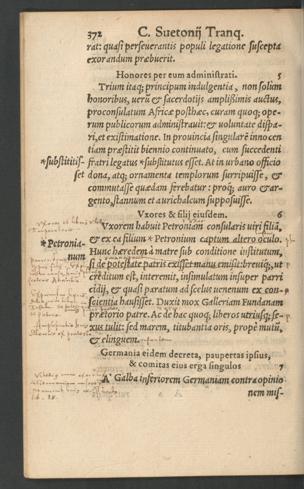 372 C. Suetonij Tranq.
rat: quasi perseverantis populi legatione suscepta
exorandum præbuerit.
Honores per eum administrati. 5
Trium itaq; principum indulgentia, non solùm
honoribus, verũ & sacerdotijs amplißimis auctus,
proconsulatum Africæ posthæc, curam quoq; ope-
rum publicorum administrauit: & voluntate dispa-
ri, et existimatione. In prouincia singularẽ innocen
tiam præstitit biennio continuato, cum succedenti
*substitutis- fratri legatus *substitutus esset. At in urbano officio
set dona, atq; ornamenta templorum surripuisse, &
commutasse quædam ferebatur: proq; auro & ar-
gento, stannum et aurichalcum supposuisse.
Vxores & filij eiusdem. 6
Vxorem habuit Petroniam consularis viri filiã,
*Petronia- & ex ea filium *Petronium captum altero oculo.
num Hunc hæredem à matre sub conditione institutum,
si de potestate patris exisset: manu emisit: breuiq́;, ut
creditum est, interemit, insimulatum insuper parri
cidij, & quasi paratum ad scelus uenenum ex con-
scientia hausisset. Duxit mox Galleriam Fundanam
prætorio patre. Ac de hac quoq; liberos utriusq; se-
xus tulit: sed marem, titubantia oris, propè mutũ,
& elinguem.
Germania eidem decreta, paupertas ipsius,
& comitas eius erga singulos 7
A Galba inferiorem Germaniam contra opinio
nem mis-